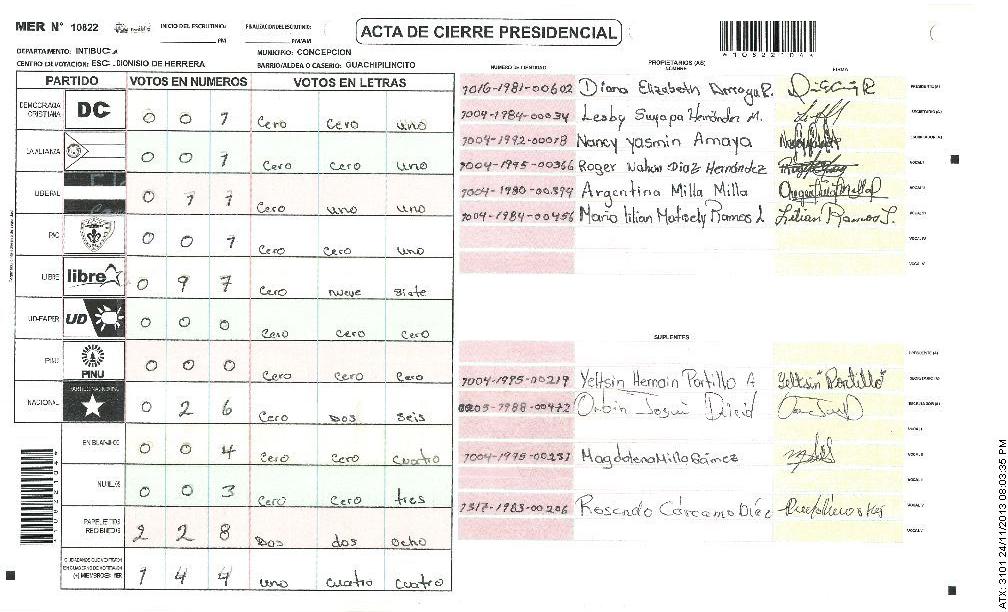 MER N° 10822
INICIO DEL ESCRUTINIO:
PM
FINALIZACION DEL ESCRUTINIO:
PM/AM
ACTA DE CIERRE PRESIDENCIAL
DEPARTAMENTO: INTIBUCA
MUNICIPIO: CONCEPCION
CENTRO DE VOTACION: ESC- .DIONISIO DE HERRERA
BARRIO/ALDEA O CASERIO: GUACHIPILINCITO
PARTIDO VOTOS EN NUMEROS VOTOS EN LETRAS
DEMOCRACIA CRISTIANA DC 0 0 1 Cero Cero uno
LA ALIANZA 0 0 1 Cero Cero uno
LIBERAL 0 1 1 Cero uno uno
PAC 0 0 1 Cero Cero uno
LIBRE libre 0 9 7 Cero nueve siete
UD-FAPER UD 0 0 0 Cero Cero Cero
PINU PINU 0 0 0 Cero Cero Cero
NACIONAL 0 2 6 Cero Dos seis
EN BLANCO 0 0 4 Cero Cero cuatro
NULOS 0 0 3 Cero Cero tres
PAPELETAS RECIBIDAS 2 2 8 Dos dos ocho
1 4 4 uno cuatro cuatro
NUMERO DE IDENTIDAD
PROPIETARIOS (AS)
NOMBRE
FIRMA
1016-1981-00602 Diana Elizabeth Arriaga R. PRESIDENTE (A)
1004-1984-00034 Lesby Suyapa Hernández M. SECRETARIO (A)
1004-1992-00078 Nancy yasmin Amaya ESCRUTADOR (A)
1004-1995-00366 Roger Nahun Diaz Hernández VOCAL I
1004-1980-00394 Argentina Milla Milla Argentina Milla VOCAL II
1004-1984-00456 Maria lilian Matisely Ramos L Lilian Ramos L. VOCAL III
VOCAL IV
VOCAL V
SUPLENTES
PRESIDENTE (A)
1004-1995-00219 Yeltsin Hernain Portillo A Yeltsin Portillo SECRETARIO (A)
ESCRUTADOR (A)
VOCAL I
1004-1975-00231 Magdalena Milla Gámez VOCAL II
VOCAL III
1317-1983-00206 Rosendo Cárcamo Díaz VOCAL IV
VOCAL V
ATX: 3101 24/11/2013 08:03:35 PM